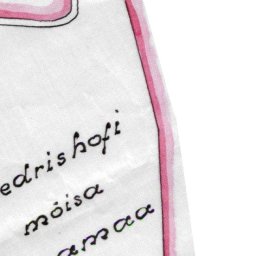 edrishofi
mõisa
amaa